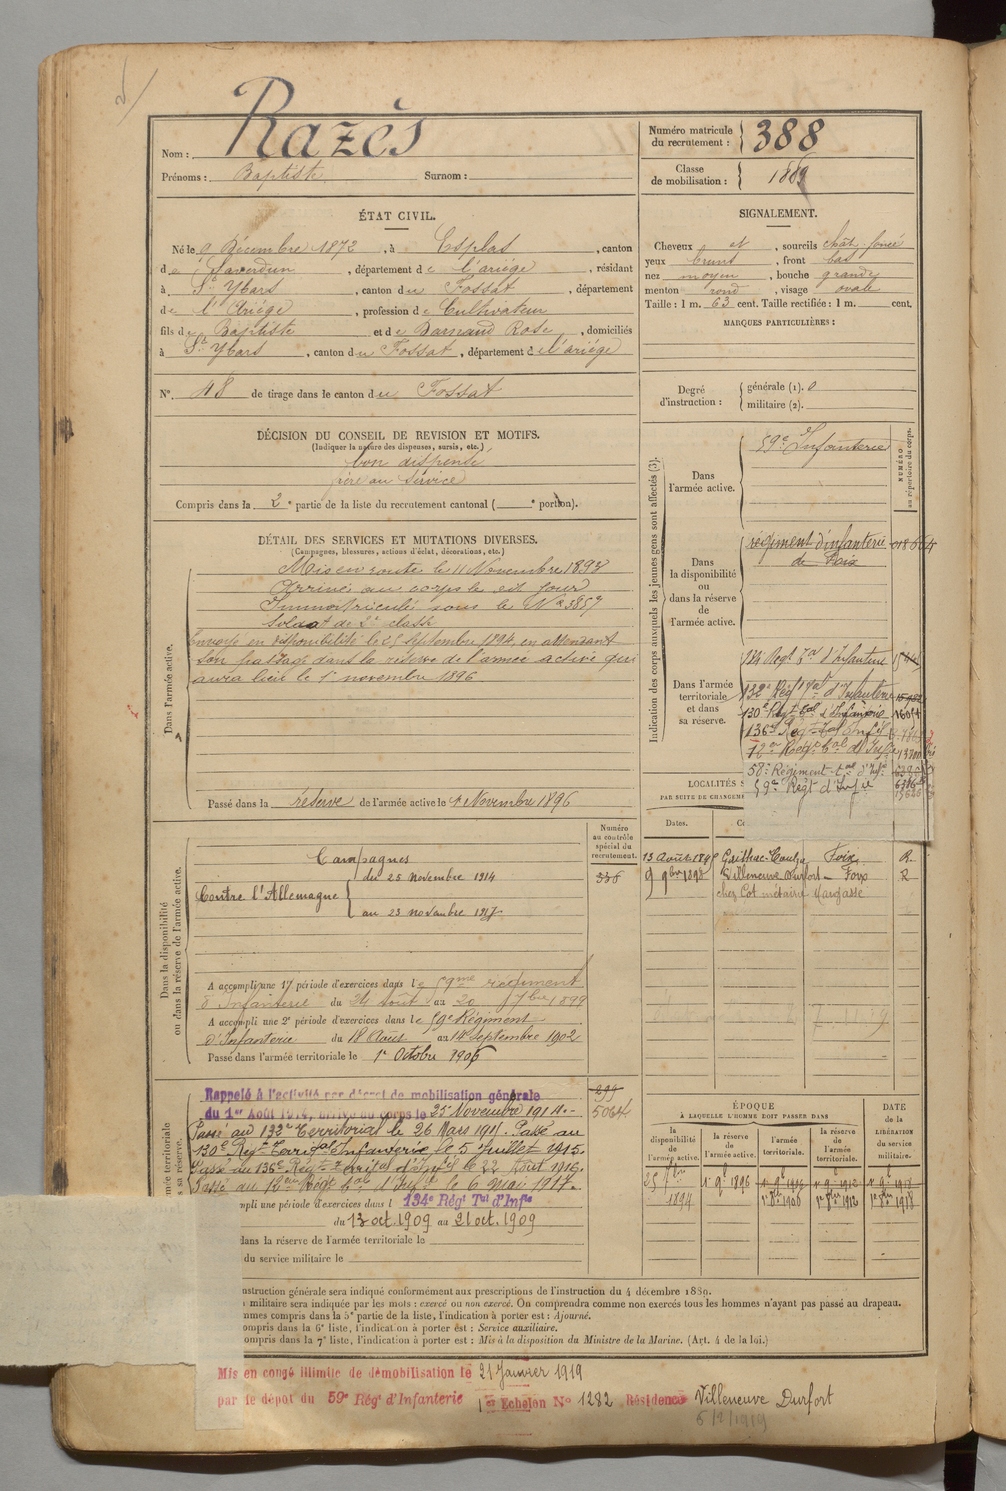 Nom : Razès
Prénoms : Baptiste Surnom :
Numéro matricule du recrutement : 388
Classe de mobilisation : 1889
ÉTAT CIVIL.
Né le 9 Décembre 1872, à Esplas, canton
de Saverdun, département de l'ariége, résidant
à St Ybars, canton du Fossat, département
de l'Ariége, profession de Cultivateur
fils de Baptiste et de Barnaud Rose, domiciliés
à St Ybars, canton du Fossat, département de l'ariége
N°. 48 de tirage dans le canton du Fossat
SIGNALEMENT.
Cheveux et, sourcils chât. foncé
yeux bruns, front bas
nez moyen, bouche grande
menton rond, visage ovale
Taille : 1 m. 63 cent. Taille rectifiée : 1 m. cent.
MARQUES PARTICULIÈRES :
Degré d'instruction : générale (1). 0
militaire (2).
DÉCISION DU CONSEIL DE REVISION ET MOTIFS.
(Indiquer la nature des dispenses, sursis, etc.)
bon dispensé
frère au service
Compris dans la 2e partie de la liste du recrutement cantonal ( e portion).
DÉTAIL DES SERVICES ET MUTATIONS DIVERSES.
(Campagnes, blessures, actions d'éclat, décorations, etc.)
Dans l'armée active.
Mis en route le 11 Novembre 1893
Arrivé au corps le dit jour
Immatriculé sous le N° 3857
Soldat de 2e classe
Envoyé en disponibilité le 25 Septembre 1894, en attendant
son passage dans la réserve de l'armée active qui
aura lieu le 1er novembre 1896
Passé dans la réserve de l'armée active le 1er Novembre 1896
Indication des corps auxquels les jeunes gens sont affectés (3).
NUMÉRO au répertoire du corps.
Dans l'armée active.
59e d'Infanterie
Dans la disponibilité ou dans la réserve de l'armée active.
régiment d'infanterie 018664
de Foix
Dans l'armée territoriale et dans sa réserve.
134 Régt Tal d'Infanterie
132e Régt Tal d'Infanterie
130e Régt Tal d'Infanterie
136e Régt Tal Infie
12e Régt Tal d'Infie
58e Régiment tal d'Infie
59e Régt d'Infie
LOCALITÉS
PAR SUITE DE CHANGEM
Dates.
13 Août 189 Gailhac-Toulza Foix R.
9 9bre 1898 Villeneuve Durfort – Foix R
chez Cot métairie Margasse
Numéro au contrôle spécial du recrutement.
336
Dans la disponibilité ou dans la réserve de l'armée active.
Campagnes
Contre l'Allemagne
du 25 Novembre 1914
au 23 novembre 1917
A accompli une 1e période d'exercices dans le 59me régiment
d'Infanterie du 24 août au 20 7bre 1899
A accompli une 2e période d'exercices dans le 59e Régiment
d'Infanterie du 18 Août au 14 Septembre 1902
Passé dans l'armée territoriale le 1er Octobre 1906
299
5064
Rappelé à l'activité par décret de mobilisation générale
du 1er Août 1914, arrivé au corps le 25 Novembre 1914.
Passé au 132e Territorial le 26 Mars 1915. Passé au
130e Régt Territal Infanterie le 5 Juillet 1915.
Passé au 136e Régt Territal d'Infie le 22 Août 1916.
Passé au 12e Régt Tal d'Infie le 6 Mai 1917.
mpli une période d'exercices dans l 134e Régt Tal d'Infie
du 13 oct. 1909 au 21 oct. 1909
dans la réserve de l'armée territoriale le
du service militaire le
ÉPOQUE
À LAQUELLE L'HOMME DOIT PASSER DANS
DATE de la LIBÉRATION du service militaire.
la disponibilité de l'armée active.
la réserve de l'armée active.
l'armée territoriale.
la réserve de l'armée territoriale.
25 7bre 1894
1er 9e 1896
1er 8bre 1906
1er 8bre 1912
1er 8bre 1918
nstruction générale sera indiqué conformément aux prescriptions de l'instruction du 4 décembre 1889.
militaire sera indiquée par les mots : exercé ou non exercé. On comprendra comme non exercés tous les hommes n'ayant pas passé au drapeau.
mmes compris dans la 5e partie de la liste, l'indication à porter est : Ajourné.
ompris dans la 6e liste, l'indication à porter est : Service auxiliaire.
ompris dans la 7e liste, l'indication à porter est : Mis à la disposition du Ministre de la Marine. (Art. 4 de la loi.)
Mis en congé illimité de démobilisation le 21 Janvier 1919
par le dépôt du 59e Régt d'Infanterie 1er Echelon N° 1282 Résidence Villeneuve Durfort
6/2/1919